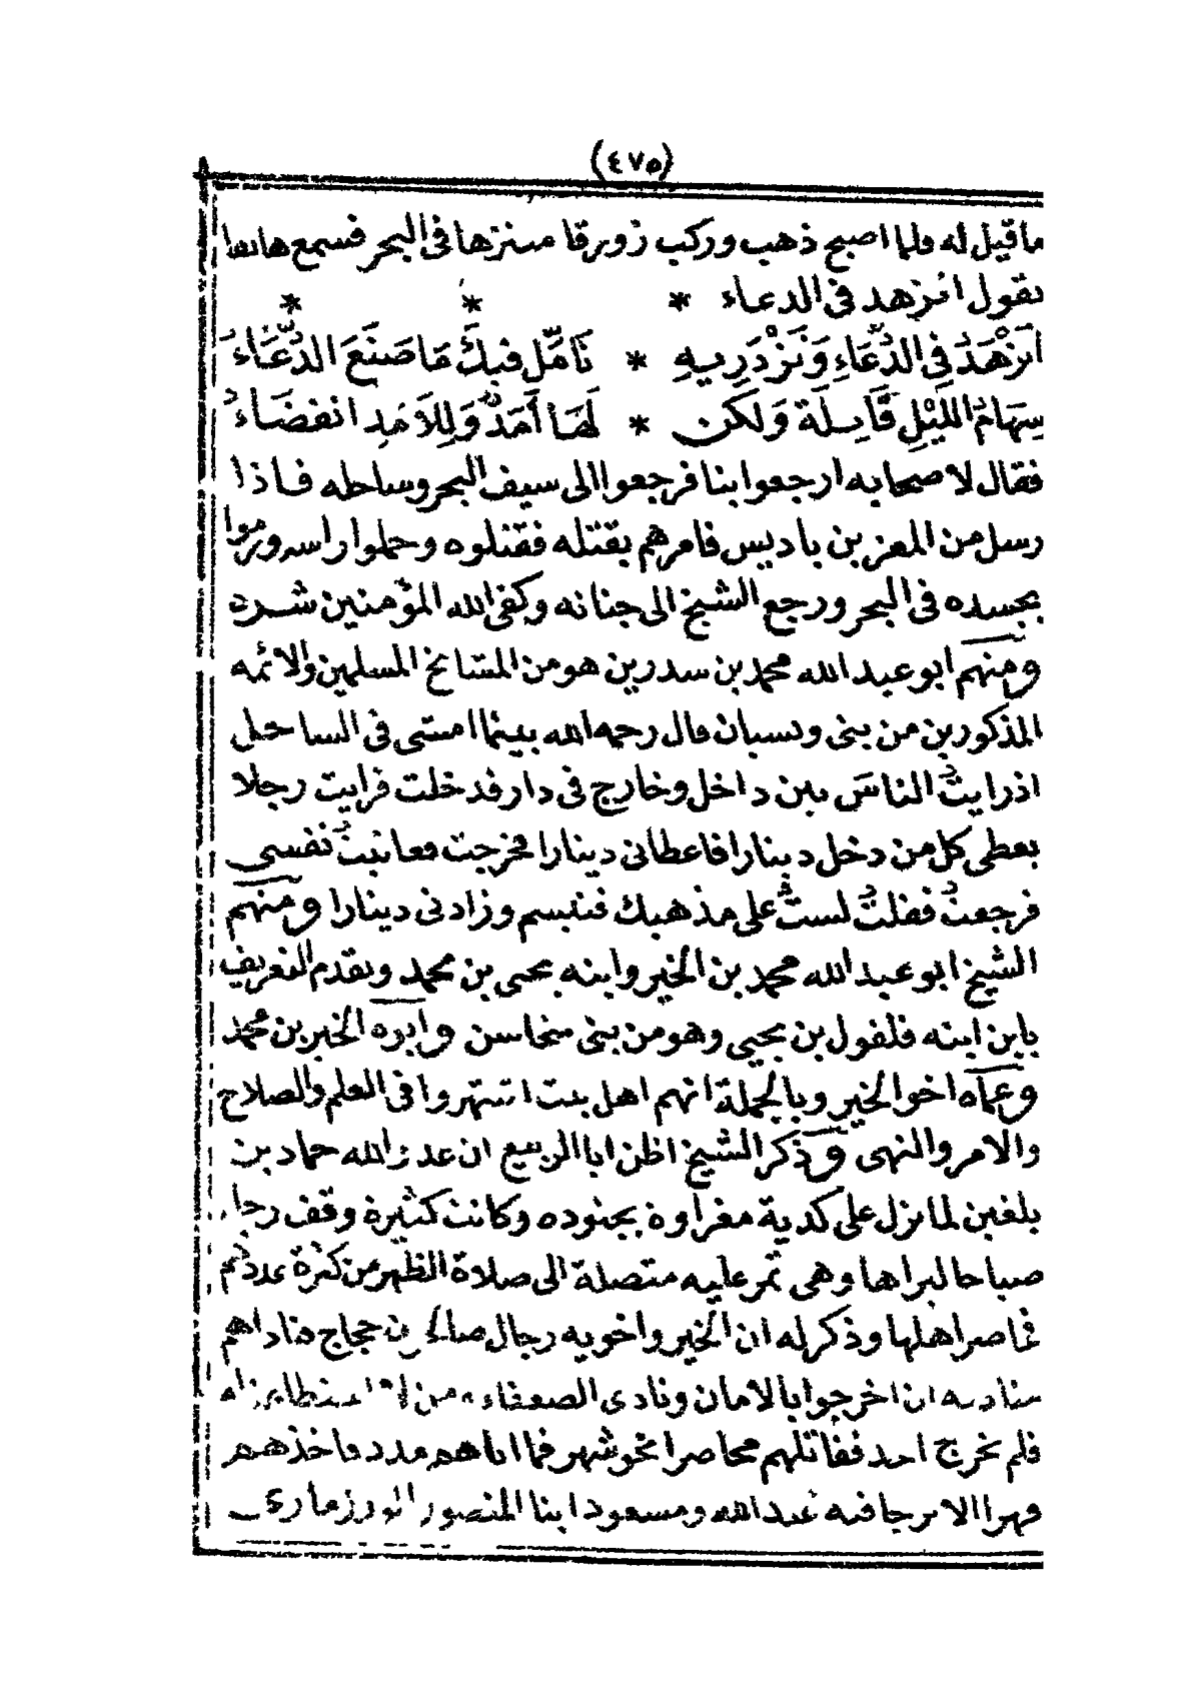 (٤٧٥)
ما قيل له فلما اصبح ذهب وركب زورقا متنزها فى البحر فسمع هاتفا
يقول اتزهد فى الدعاء * * *
اَتَزْهَدُ فِى الدُّعَاءِ وَتَزْدَرِيهِ * تَامَّل فِيكَ مَا صَنَعَ الدُّعَاءُ
سِهَامُ اللَّيْلِ قَاتِلَة وَلَكن * لَهَا أَمَدٌ وَلِلاَمَدِ انقضَاءُ
فقال لاصحابه ارجعوا بنا فرجعوا الى سيف البحر وساحله فاذا
رسل من المعز بن باديس فامرهم بقتله فقتلوه وحملوا راسه ورموا
بجسده فى البحر ورجع الشيخ الى جنانه وكفى الله المؤمنين شره
ومنهم ابو عبد الله محمد بن سدرين هو من المشائخ المسلمين والائمه
المذكورين من بنى ويسيان قال رحمه الله بينما امشى فى الساحل
اذ رايتُ الناسَ بين داخل وخارج فى دار فدخلت فرايت رجلا
يعطى كل من دخل دينارا فاعطانى دينارا فخرجت فعاتبتُ نفسى
فرجعتُ فقلتُ لستُ على مذهبك فتبسم وزادنى دينارا ومنهم
الشيخ ابو عبد الله محمد بن الخير وابنه يحيى بن محمد وتقدم التعريف
بابن ابنه فلفول بن يحيى وهو من بنى منخاسن وابوه الخير بن محمد
وعماه اخوا الخير وبالجملة انهم اهل بيت اشتهروا فى العلم والصلاح
والامر والنهى وذكر الشيخ اظن ابا الربيع ان عدو الله حماد بن
بلغين لما نزل على كدية مغراوة بجنوده وكانت كثيرة وقف رجل
صباحا ليراها وهى تمر عليه متصلة الى صلاة الظهر من كثرة عددهم
فحاصر اهلها وذكر له ان الخير واخويه رجال صالحون حجاج فناداهم
مناديه ان اخرجوا بالامان ونادى الضعفاء من
فلم يخرج احد فقاتلهم محاصرا نحو شهر فما اتاهم مدد فاخذهم
قهرا الا برجا فيه عبد الله ومسعود ابنا المنصور